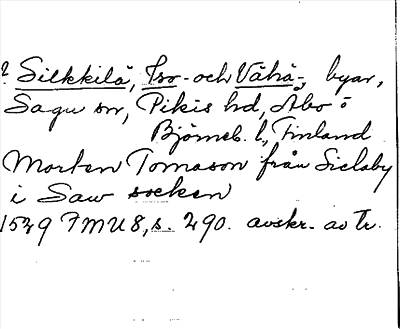 ? Silkkilä, Iso- och Vähä-, byar,
Sagu sn, Pikis hd, Åbo o
Björneb. l., Finland
Morten Tomason från Sielaby
i Saw socken
1549 FMU 8, s. 290. avskr. av Tr.